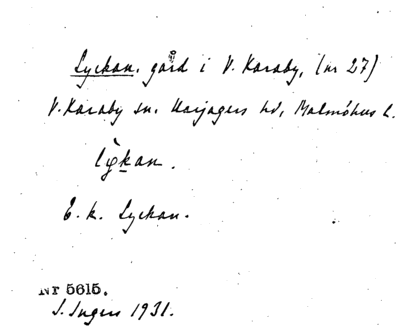 Lyckan. gård i V. Karaby, (nr 27)
V. Karaby sn. Harjagers hd, Malmöhus l.
lỳkan.
E. k. Lyckan.
Nr 5615.
S. Ingers 1931.